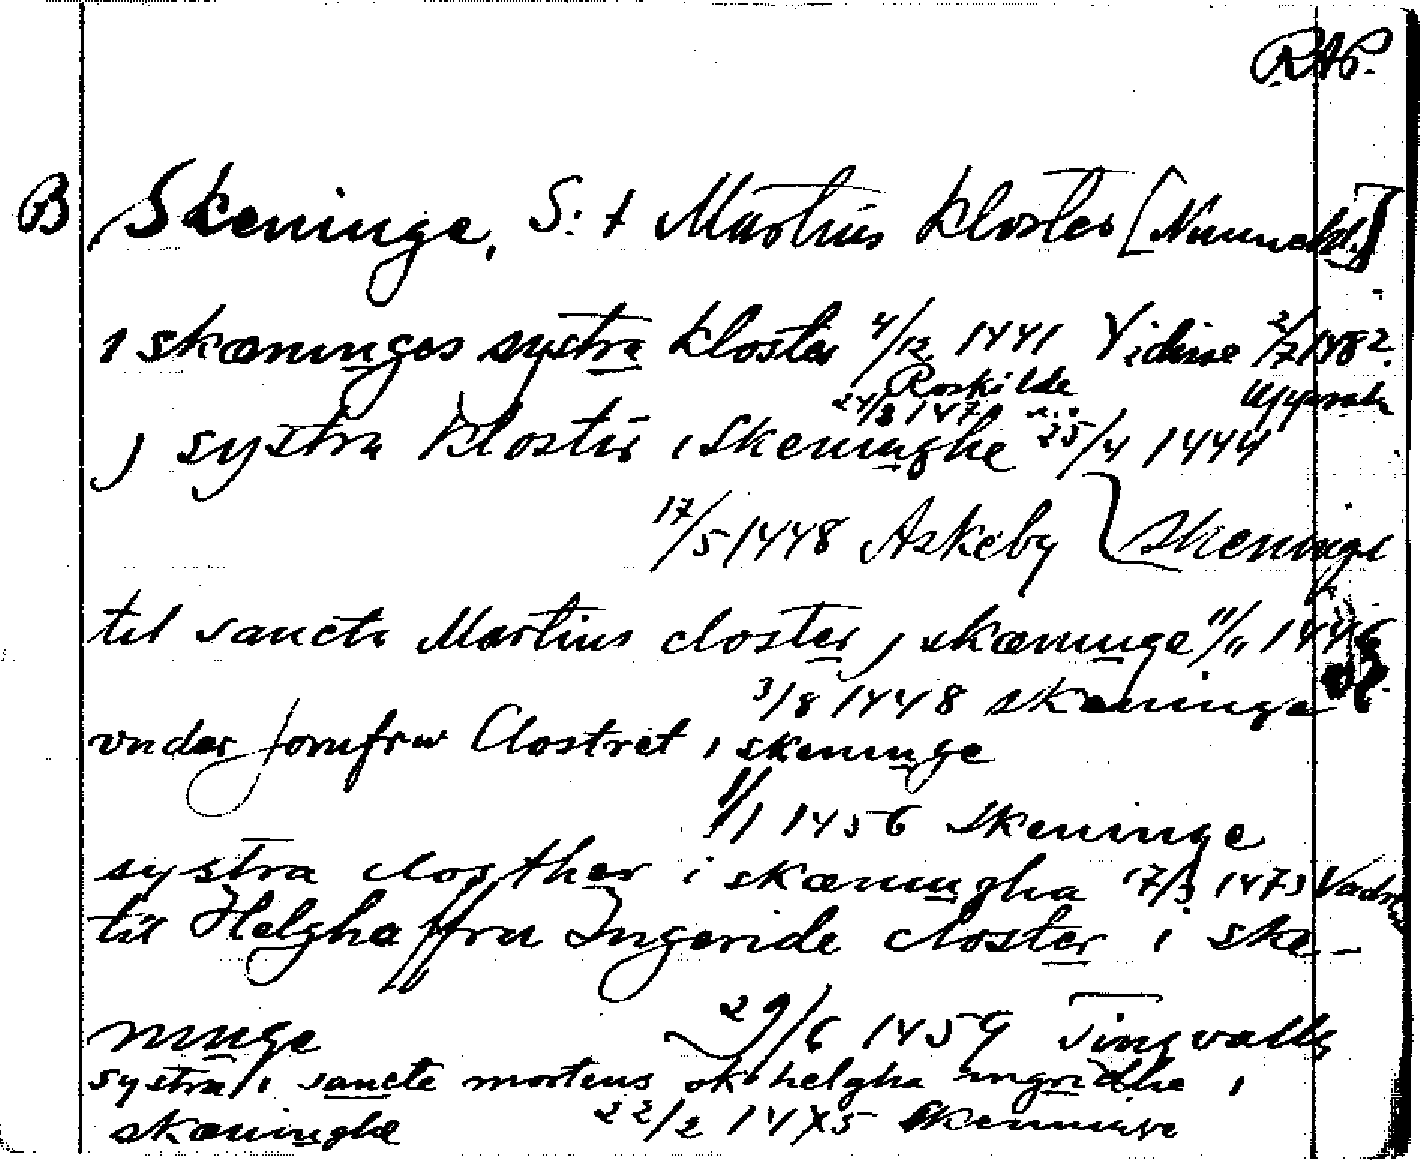 RAP.
B Skeninge, S:t Martins kloster [Nunnekl.]
i skæninges systra kloster 4/12 1441 2/7 1482.
Roskilde Uppsala
24/3 1471
j systra klostir i Skeninghe 25/4 1444
17/5 1448 Askeby Skeninge
til sancti Martins closter j skæninge 11/11 1446
3/8 1448 Skeninge
vnder jomfrw Clostret i skeninge
1/1 1456 Skeninge
systra closther i skæningha 17/3 1473 Vadst
till Helgha ffru Ingeride closter i ske-
ninge 29/6 1459 Tingvalla
systra i sancte mortens ok helgha ingridhe i
skæninghe 22/2 1475 Skeninge